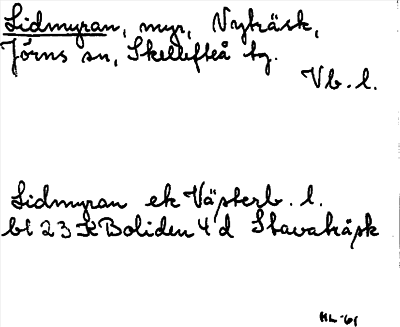 Lidmyran, myr, Nyträsk,
Jörns sn, Skellefteå tg.
Vb. l.
Lidmyran ek Västerb. l.
bl 23 K Boliden 4 d Stavaträsk
HL -61